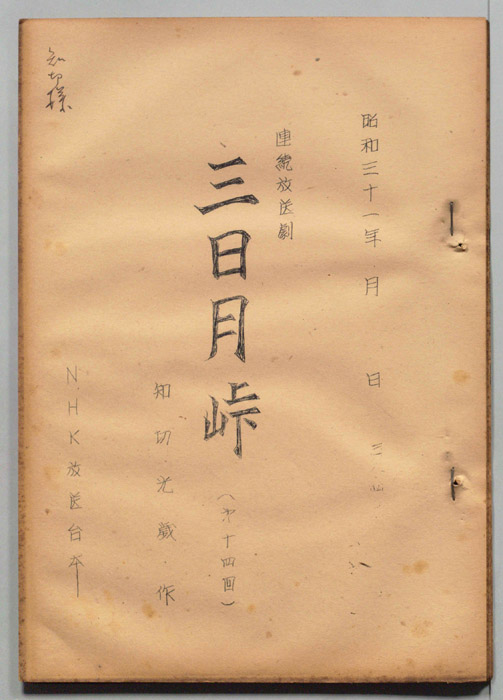 昭和三十一年 月 日
連続放送劇
三日月峠
(第十四回)
知切光蔵 作
NHK放送台本
知切様